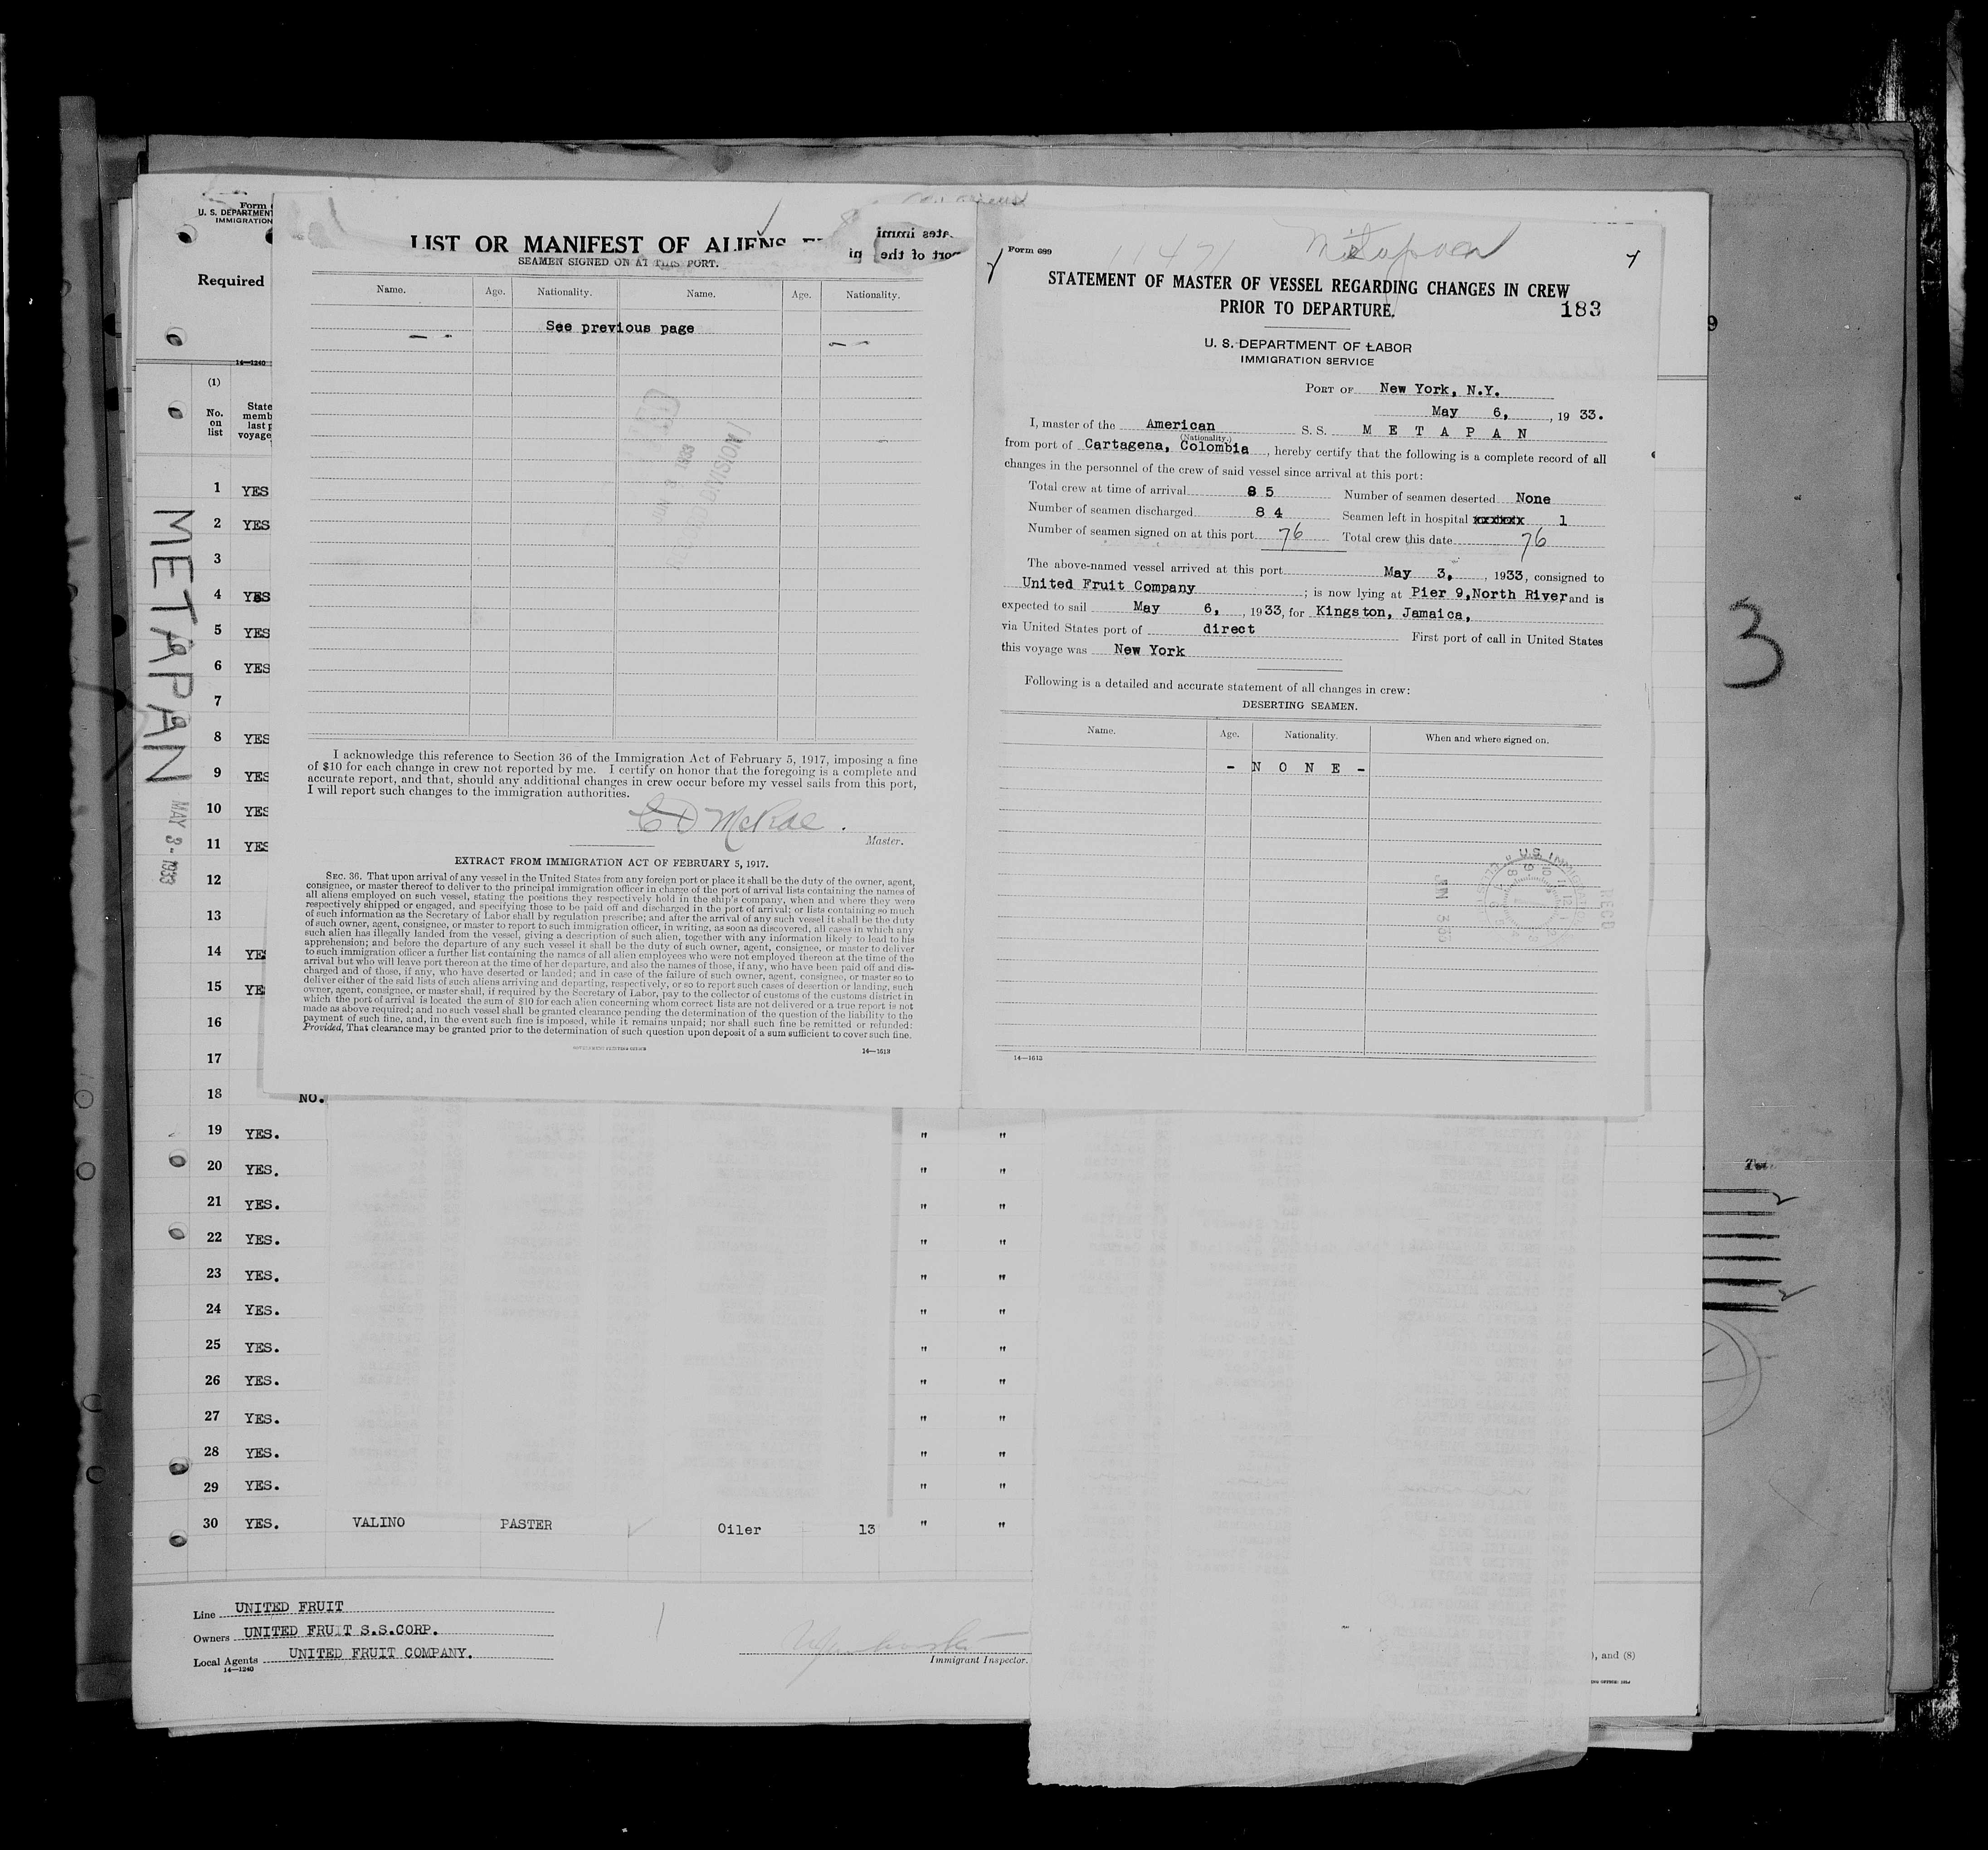 Form
U. S. DEPARTMENT
IMMIGRATION
Required
14—1240
(1)
No.
on
list
State
memb
last p
voyage
METAPAN
MAY 3 - 1933
1 YES
2 YES
3
4 YES
5 YES
6 YES
7
8 YES
9 YES
10 YES
11 YES
12
13
14 YES
15 YE
16
17
18 NO.
19 YES. " "
20 YES. " "
21 YES. " "
22 YES. " "
23 YES. " "
24 YES. " "
25 YES. " "
26 YES. " "
27 YES. " "
28 YES. " "
29 YES. " "
30 YES. VALINO PASTER Oiler 13 " "
Line UNITED FRUIT
Owners UNITED FRUIT S.S.CORP.
Local Agents UNITED FRUIT COMPANY.
14—1240
Immigrant Inspector.
), and (8)
LIST OR MANIFEST OF ALIENS
ates immi
port of the in
SEAMEN SIGNED ON AT THIS PORT.
Name. Age. Nationality. Name. Age. Nationality.
See previous page
I acknowledge this reference to Section 36 of the Immigration Act of February 5, 1917, imposing a fine
of $10 for each change in crew not reported by me. I certify on honor that the foregoing is a complete and
accurate report, and that, should any additional changes in crew occur before my vessel sails from this port,
I will report such changes to the immigration authorities.
E D McRae.
Master.
EXTRACT FROM IMMIGRATION ACT OF FEBRUARY 5, 1917.
SEC. 36. That upon arrival of any vessel in the United States from any foreign port or place it shall be the duty of the owner, agent,
consignee, or master thereof to deliver to the principal immigration officer in charge of the port of arrival lists containing the names of
all aliens employed on such vessel, stating the positions they respectively hold in the ship's company, when and where they were
respectively shipped or engaged, and specifying those to be paid off and discharged in the port of arrival; or lists containing so much
of such information as the Secretary of Labor shall by regulation prescribe; and after the arrival of any such vessel it shall be the duty
of such owner, agent, consignee, or master to report to such immigration officer, in writing, as soon as discovered, all cases in which any
such alien has illegally landed from the vessel, giving a description of such alien, together with any information likely to lead to his
apprehension; and before the departure of any such vessel it shall be the duty of such owner, agent, consignee, or master to deliver
to such immigration officer a further list containing the names of all alien employees who were not employed thereon at the time of the
arrival but who will leave port thereon at the time of her departure, and also the names of those, if any, who have been paid off and dis-
charged and of those, if any, who have deserted or landed; and in case of the failure of such owner, agent, consignee, or master so to
deliver either of the said lists of such aliens arriving and departing, respectively, or so to report such cases of desertion or landing, such
owner, agent, consignee, or master shall, if required by the Secretary of Labor, pay to the collector of customs of the customs district in
which the port of arrival is located the sum of $10 for each alien concerning whom correct lists are not delivered or a true report is not
made as above required; and no such vessel shall be granted clearance pending the determination of the question of the liability to the
payment of such fine, and, in the event such fine is imposed, while it remains unpaid; nor shall such fine be remitted or refunded:
Provided, That clearance may be granted prior to the determination of such question upon deposit of a sum sufficient to cover such fine.
GOVERNMENT PRINTING OFFICE
14—1613
Form 689
11471
Metapan
STATEMENT OF MASTER OF VESSEL REGARDING CHANGES IN CREW
PRIOR TO DEPARTURE.
183
U. S. DEPARTMENT OF LABOR
IMMIGRATION SERVICE
PORT OF New York, N.Y.
May 6, , 19 33.
I, master of the American S. S. M E T A P A N
(Nationality.)
from port of Cartagena, Colombia , hereby certify that the following is a complete record of all
changes in the personnel of the crew of said vessel since arrival at this port:
Total crew at time of arrival 8 5 Number of seamen deserted None
Number of seamen discharged 8 4 Seamen left in hospital xxxxxx 1
Number of seamen signed on at this port 76 Total crew this date 76
The above-named vessel arrived at this port May 3, , 1933, consigned to
United Fruit Company ; is now lying at Pier 9,North River and is
expected to sail May 6, , 1933, for Kingston, Jamaica,
via United States port of direct First port of call in United States
this voyage was New York
Following is a detailed and accurate statement of all changes in crew:
DESERTING SEAMEN.
Name. Age. Nationality. When and where signed on.
- N O N E -
RECD
14—1613
3
9